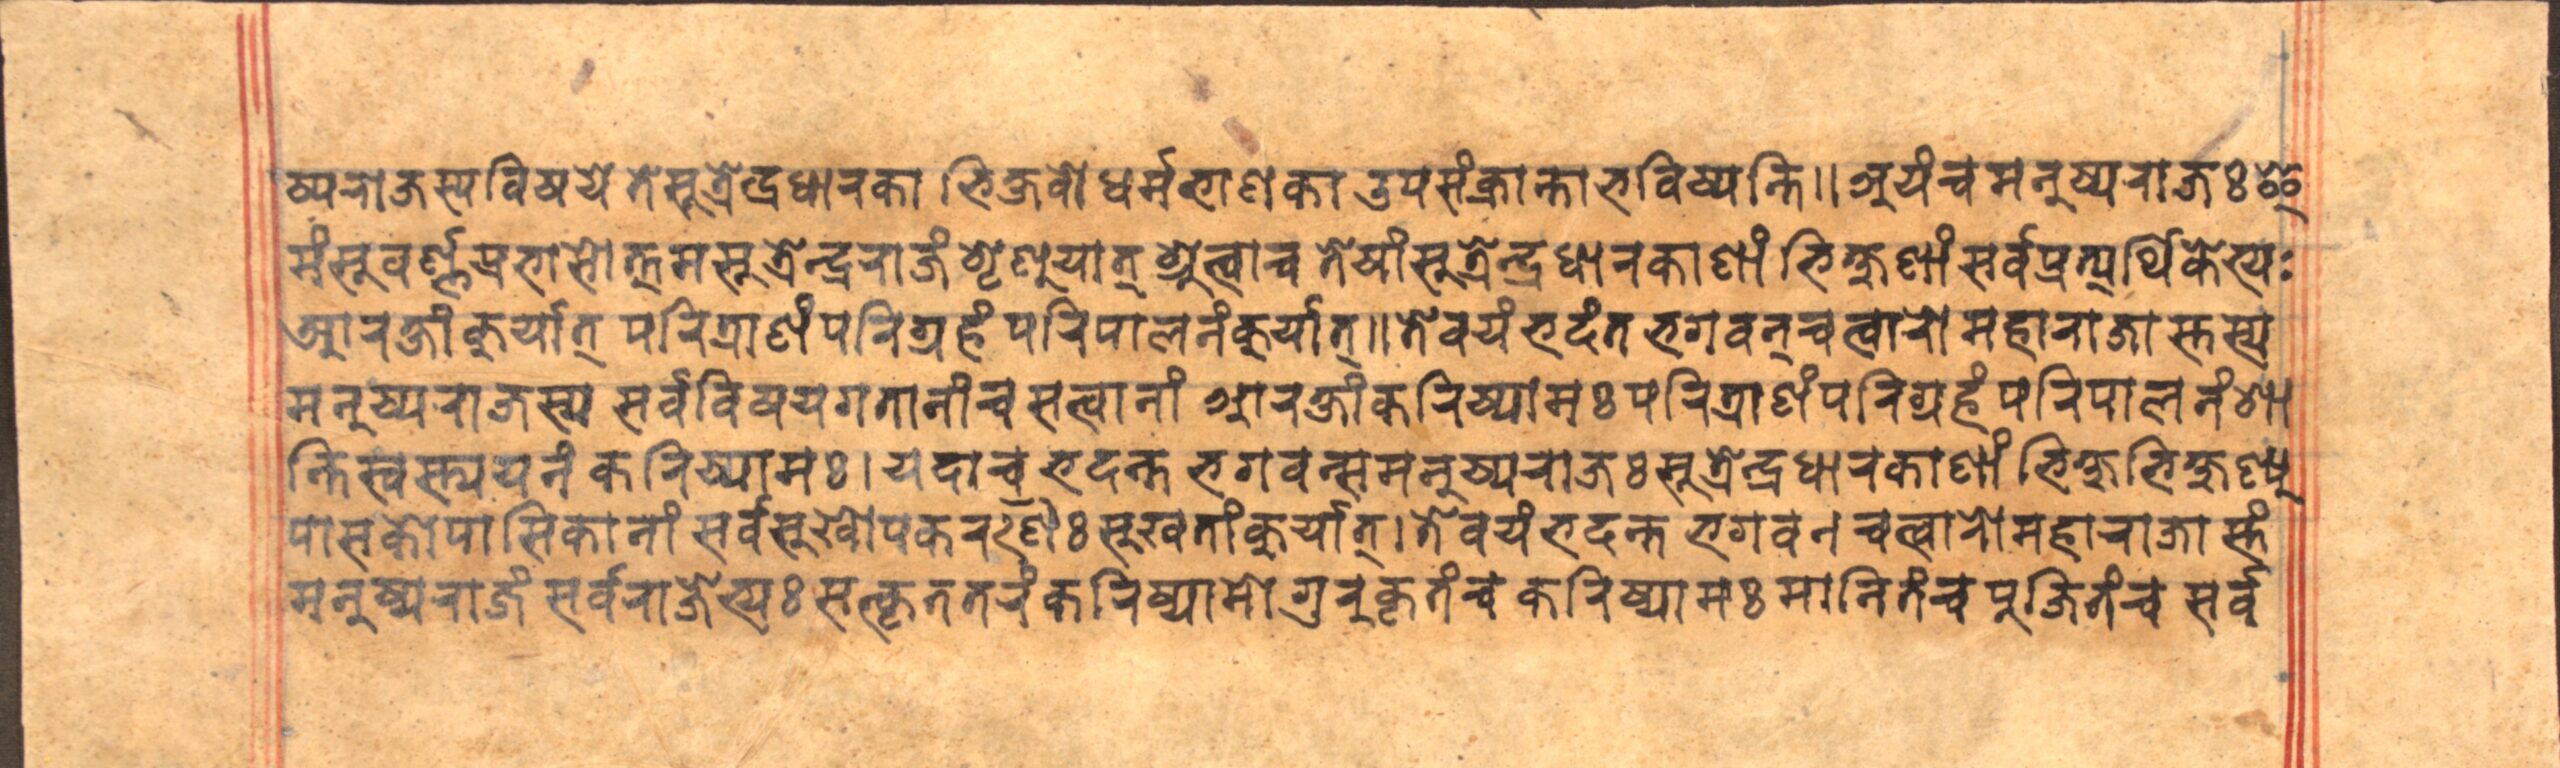 ष्यराजस्य विषये ते सूत्रेन्द्रधारका भिक्षवो धर्मभाणका उपसंक्रान्ता भविष्यन्ति॥ अयंच मनुष्यराजः
मं सुवर्ण्णप्रभासोत्तमसूत्रेन्द्रराजं शृणुयात् श्रुत्वाच तेषां सूत्रेन्द्रधारकाणां भिक्षुणां सर्वप्रत्यर्थिकेभ्यः
आरक्षां कुर्यात् परित्राणं परिग्रहं परिपालनं कुर्यात्॥ ते वयं भदंत भगवन् चत्वारो महाराजा स्तस्य
मनुष्यराजस्य सर्वविषयगतानांच सत्वानां आरक्षां करिष्यामः परित्राणं परिग्रहं परिपालनं शा
न्ति स्वस्त्ययनं करिष्यामः। यदाच भदन्त भगवन्समनुष्यराजः सूत्रेन्द्रधारकाणां भिक्षुभिक्षुण्यु
पासकोपासिकानां सर्वसुखोपकरणैः सुखतां कुर्यात्। ते वयं भदन्त भगवन चत्वारो महाराजा स्तं
मनुष्यराजं सर्वराजेभ्यः सत्कृततरं करिष्यामो गुरुकृतंच करिष्यामः मानितंच पूजितंच सर्व